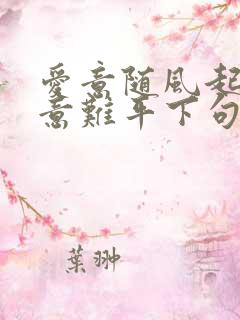 愛意随風起
意難平下句
葉翀